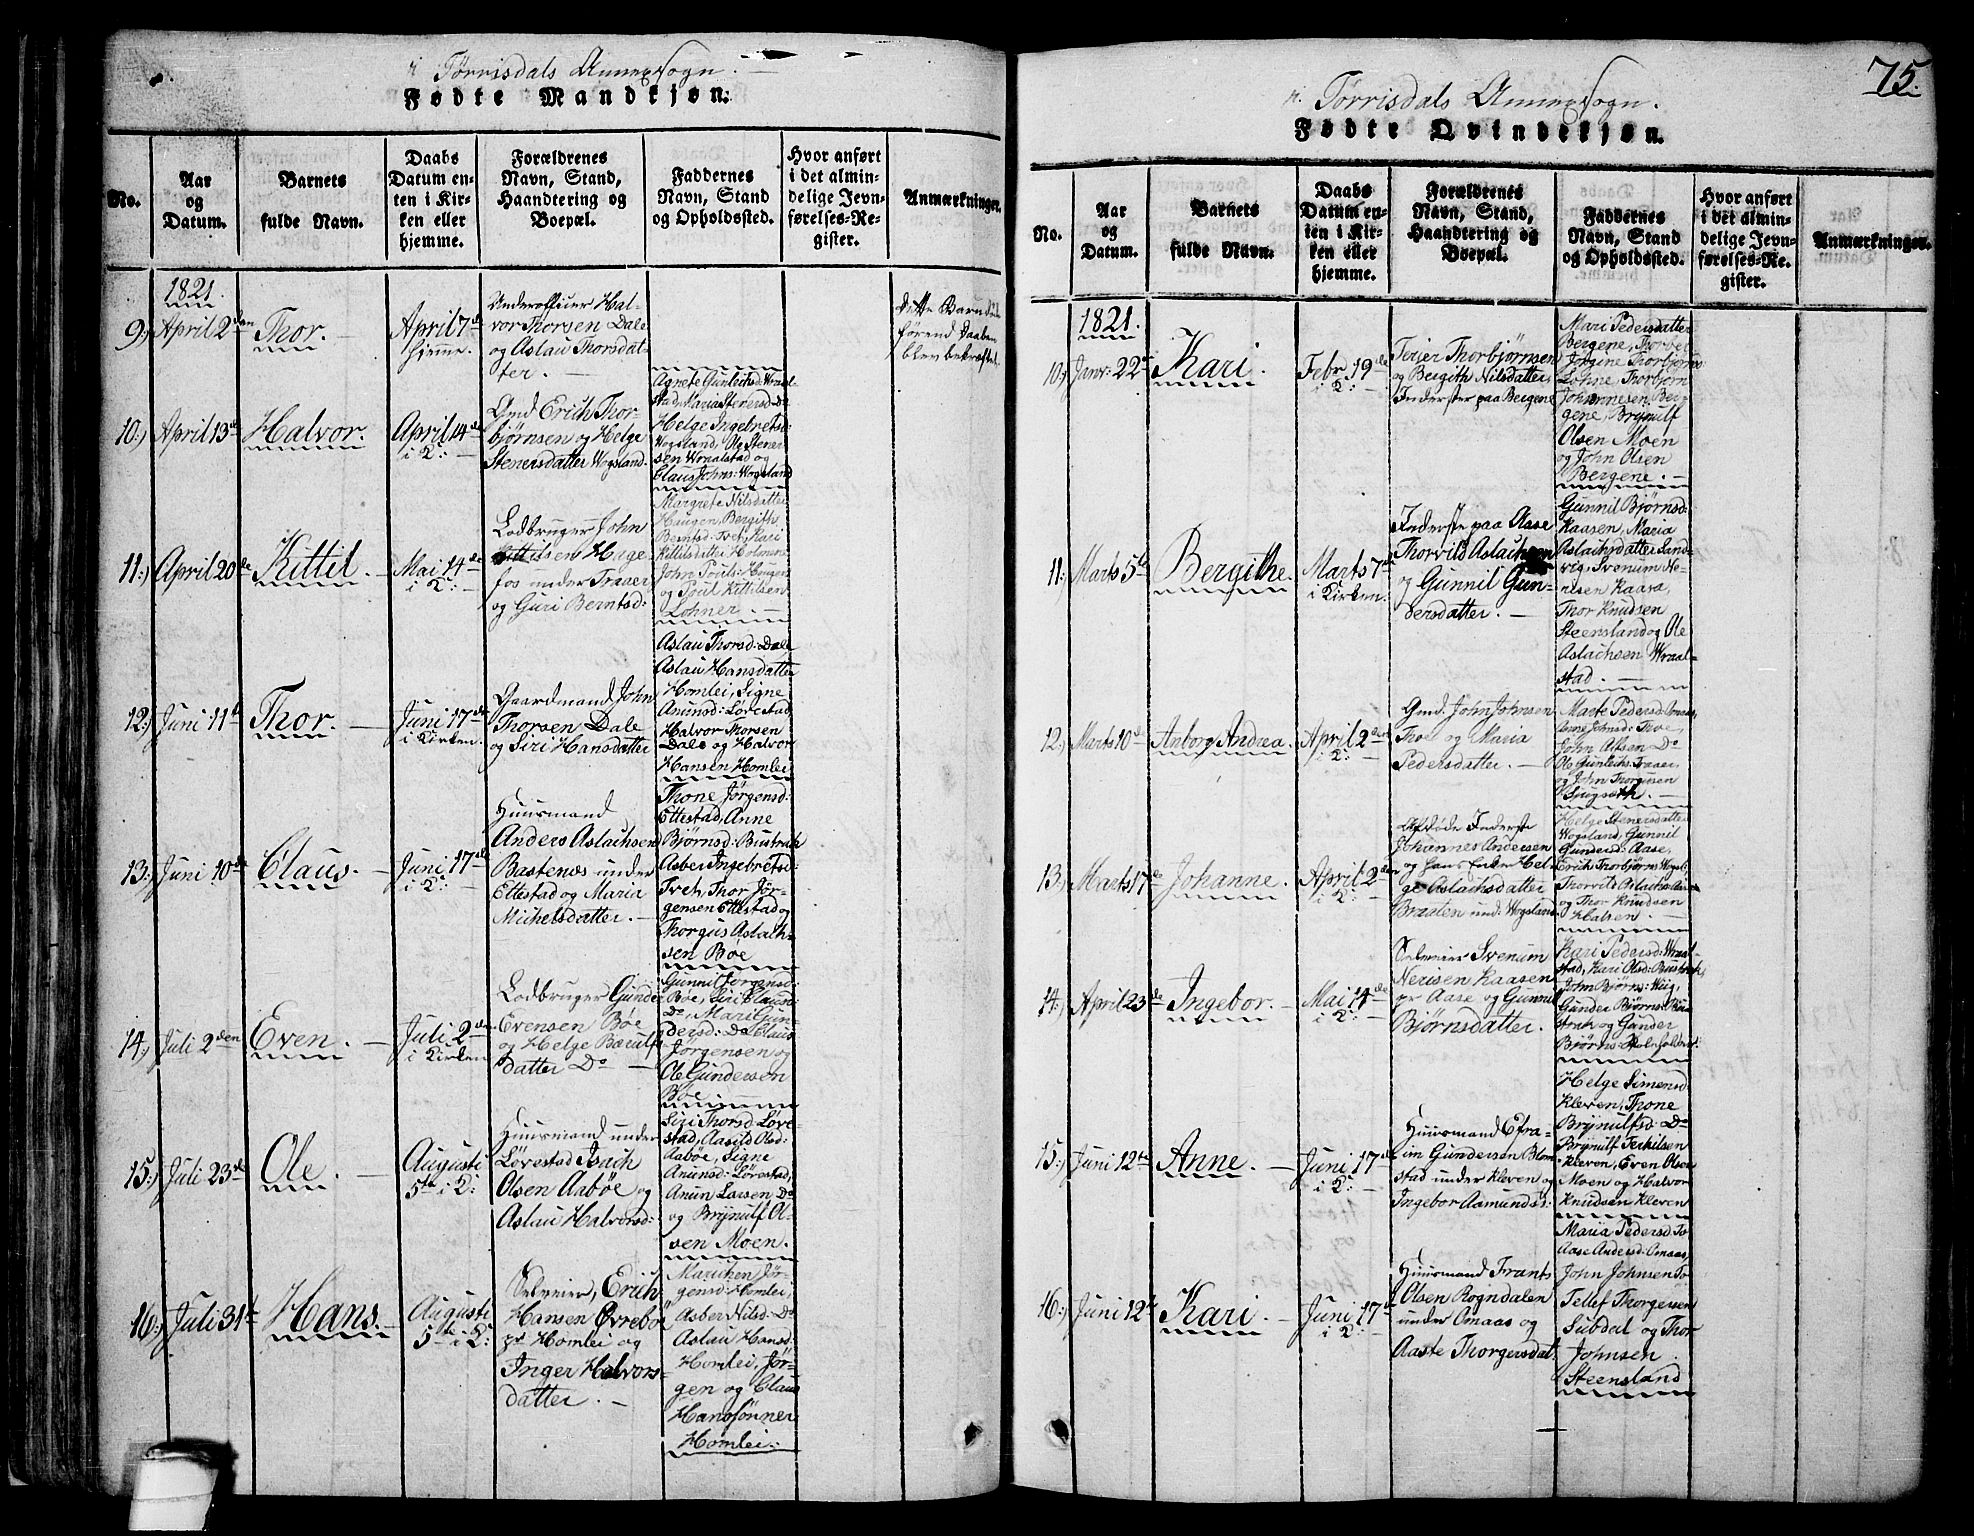 i Tørrisdals Annexsogn.
Fødte Mandkjøn:
No.
Aar
og
Datum.
Barnets
fulde Navn.
Daabs
Datum en-
ten i Kir-
ken eller
hjemme.
Forældrenes
Navn, Stand,
Haandtering og
Boepæl.
Faddernes
Navn, Stand
og Opholdssted.
Hvor anført
i det almin-
delige Jevn-
førelses-Re-
gister.
Anmærkninger.
1821.
9.) April 2den
Thor.
April 7de
hjemme.
Underofficer Hal-
vor Thorsen Dale
og Aslau Thorsdat-
ter.
Dette Barn døde
førend Daaben
blev bekræftet.
10.) April 13de
Halvor.
April 14de
i K:
Gmd Erich Thor-
bjørnsen og Helge
Stenersdatter Wogsland.
Agnete Gunleichsd: Wraal-
stad, Maria Stenersd: Do
Helge Ingebretsd:
Wogsland, Ole Stener
sen Wraalstad og
Claus Johns: Wogsland
11.) April 20de
Kittil.
Mai 14de
i K:
Lodbruger John
Kittilsen Hage-
fos under Traaer
og Guri Berntsd:
Margrete Nilsdatter
Haugen, Bergith
Berntsd: Tvet, Kari
Kittilsdatter Holmene
John Pouls: Haugen
og Poul Kittilsen
Lohner.
12.) Juni 11te
Thor.
Juni 17de
i Kirken.
Gaardmand John
Thorsen Dale
og Siri Hansdatter
Aslau Thorsd: Dale
Aslau Hansdatter
Homlei, Signe
Anunsd: Løvestad,
Halvor Thorsen
Dale og Halvor
Hansen Homlei
13.) Juni 10de
Claus.
Juni 17de
i K:
Huusmand
Anders Aslachsen
Bastenæs under
Ettestad og Maria
Michelsdatter.
Thone Jørgensd:
Ettestad, Anne
Bjørnsd: Bustrak
Asber Ingebretsd:
Tvet, Thor Jør-
gensen Ettestad og
Thorgus Aslach-
sen Bøe
14.) Juli 2den
Even.
Juli 2den
i Kirken
Lodbruger Gunder
Evensen Bøe
og Helge Bærulfs
datter Do
Gunnil Jørgensd:
Bøe, Siri Clausd:
Do, Mari Gun-
dersd: Do Claus
Jørgensen og
Ole Gundersen
Bøe
15.) Juli 23de
Ole.
Augusti
5te i K:
Huusmand under
Løvestad Isach
Olsen Aabøe og
Aslau Halvorsd:
Siri Thorsd Løve-
stad, Aasild Olsd:
Aabøe, Signe
Anunsd: Løvestad,
Anun Larsen Do
og Brynulf Ol-
sen Moen.
16.) Juli 31te
Hans.
Auguste
5te i K:
Selveier, Erich
Hansen Øvrebøe
pr Homlei og
Inger Halvors-
datter.
Marichen Jør-
gensd: Homlei,
Asber Nilsd: Do
Aslau Hansd:
Homlei, Jør-
gen og Claus
Hanssønner
Homlei.
75.
i Tørrisdals Annexsogn.
Fødte Qvindekjøn.
No.
Aar
og
Datum.
Barnets
fulde Navn.
Daabs
Datum en-
ten i Kir-
ken eller
hjemme.
Forældrenes
Navn, Stand,
Haandtering og
Boepæl.
Faddernes
Navn, Stand
og Opholdssted.
Hvor anført
i det almin-
delige Jevn-
førelses-Re-
gister.
Anmærkninger.
1821.
10.) Janv: 22de
Kari.
Febr 19de
i K:
Terjer Thorbjørnsen
og Bergith Nilsdatter,
Inderster paa Bergene
Mari Pedersdatter
Bergene, Thorbor
Jørgine Thorbjørns
Lohne, Thorbjørn
Johannesen Ber-
gene, Brynulf
Olsen Moen
og John Olsen
Bergene.
11.) Marts 5te
Bergithe.
Marts 7de
i Kirken.
Inderste paa Aase
Thorvild Aslachsen
og Gunnil Gun-
dersdatter.
Gunnil Bjørnsd:
Kaasen, Maria
Aslachsdatter Sand-
vig, Svenum Ne-
risen Kaasa,
Thor Knudsen
Steensland og Ole
Aslachsen Wraal-
stad.
12.) Marts 10de
Anborg Andrea.
April 2den
i K:
Gmd. John Johnsen
Thoe og Maria
Pedersdatter.
Marte Pedersd: Omaas,
Anne Johnsd: Thoe,
John Alfsen Do
Ole Gunleichs: Traaer,
og John Thorgusen
Bjugseth.
13.) Marts 17de
Johanne.
April 2den
i K:
Afdøde Inderste
Johannes Andersen
og hans Enke Hel-
ge Aslachsdatter
Braaten und: Wogsland
Helge Stenersdatter
Wogsland, Gunnil
Gundersd: Aase,
Erich Thorbjørns: Wogsl:
Thorvild Aslachs: Aase
og Thor Knudsen
Klausen.
14.) April 23de
Ingebor.
Mai 14de
i K:
Selveier Svenum
Nerisen Kaasen
pr Aase og Gunnil
Bjørnsdatter.
Kari Pedersd: Wraal-
stad, Kari Olsd: Bustrak,
John Bjørns: Wiig,
Gunder Bjørns: Bu-
strak og Gunder
Bjørns:
15.) Juni 12te
Anne.
Juni 17de
i K:
Huusmand Efra-
im Gundersen Blom-
stad under Kleven og
Ingebor Aamundsd:
Helge Simensd:
Kleven, Thone
Brynulfsd: Do
Brynulf Terkilsen
Kleven, Even Olsen
Moen og Halvor
Knudsen Kleven
16.) Juni 12te
Kari.
Juni 17de
i K:
Huusmand Frants
Olsen Rogndalen
under Omaas og
Aaste Thorgersdat.
Maria Pedersd: To
Aase Andersd: Omaas,
John Johnsen To
Tellef Thorgersen
Subdal og Thor
Johnsen
Steensland